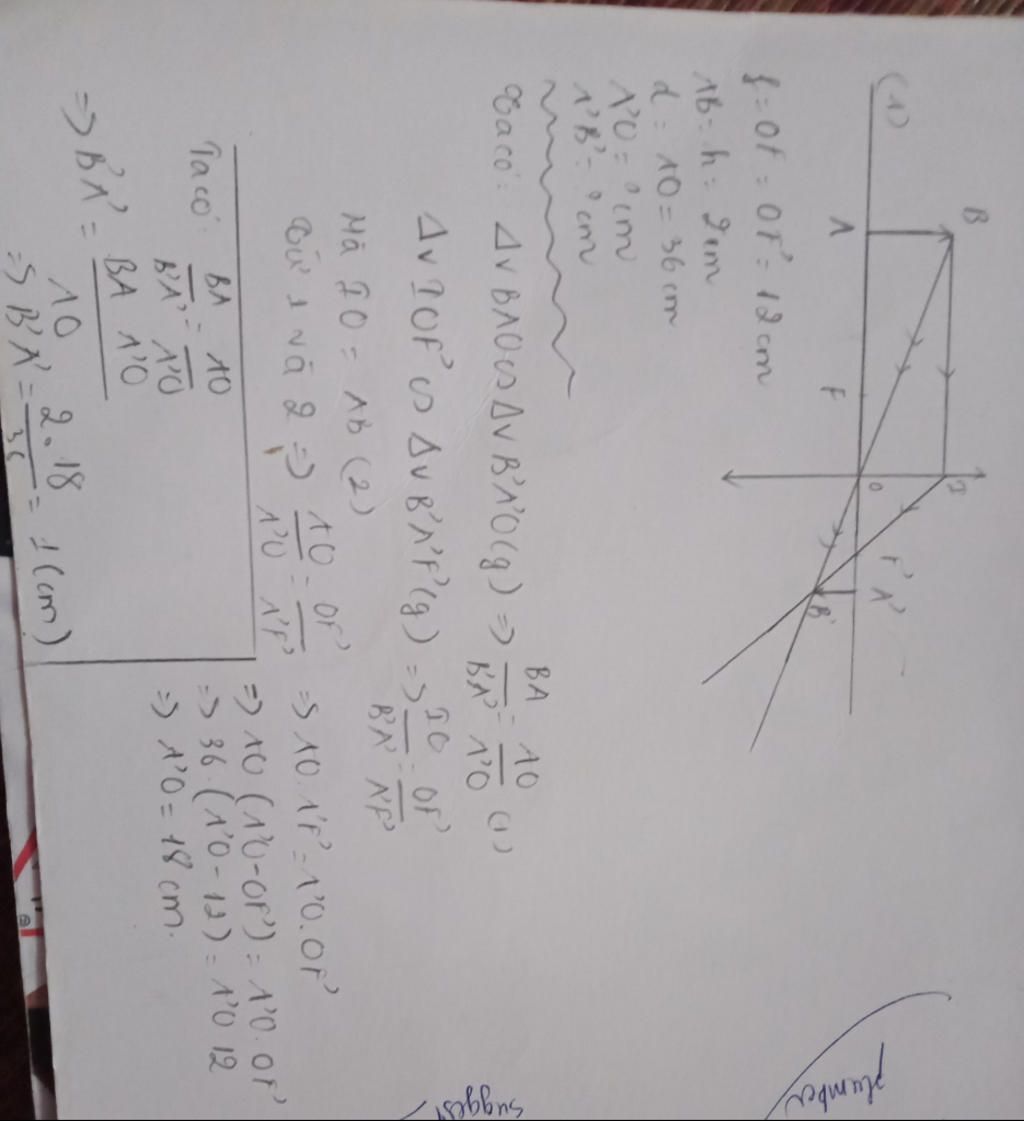 (1)
B
I
A
F
O
F' A'
B'
f = OF = OF' = 12 cm
AB = h = 2 cm
d = AO = 36 cm
A'O = ? cm
A'B' = ? cm
Ta có: Δv BAO ∽ Δv B'A'O (g) => BA/B'A' = AO/A'O (1)
Δv IOF' ∽ Δv B'A'F' (g) => IO/B'A' = OF'/A'F'
Mà IO = AB (2)
Từ 1 và 2 => AO/A'O = OF'/A'F'
=> AO . A'F' = A'O . OF'
=> AO (A'O - OF') = A'O . OF'
=> 36 . (A'O - 12) = A'O 12
=> A'O = 18 cm.
Ta có: BA/B'A' = AO/A'O
=> B'A' = BA A'O/AO
=> B'A' = 2 . 18/36 = 1 (cm)
plumber
suggest